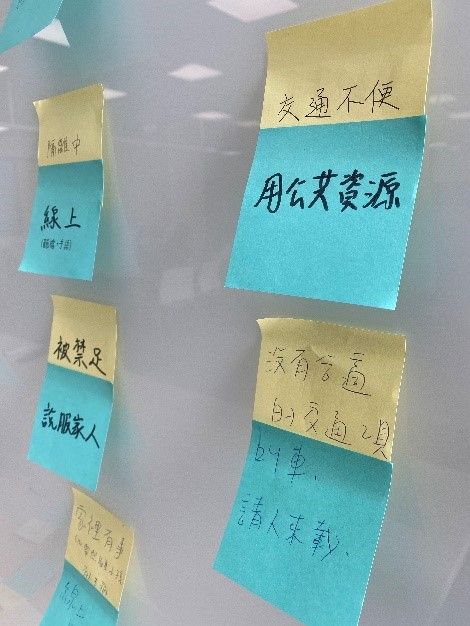 隔離中
線上
被禁足
說服家人
家裡有事
線上
交通不便
用公共資源
沒有合適
的交通工具
叫車、
請人來載、